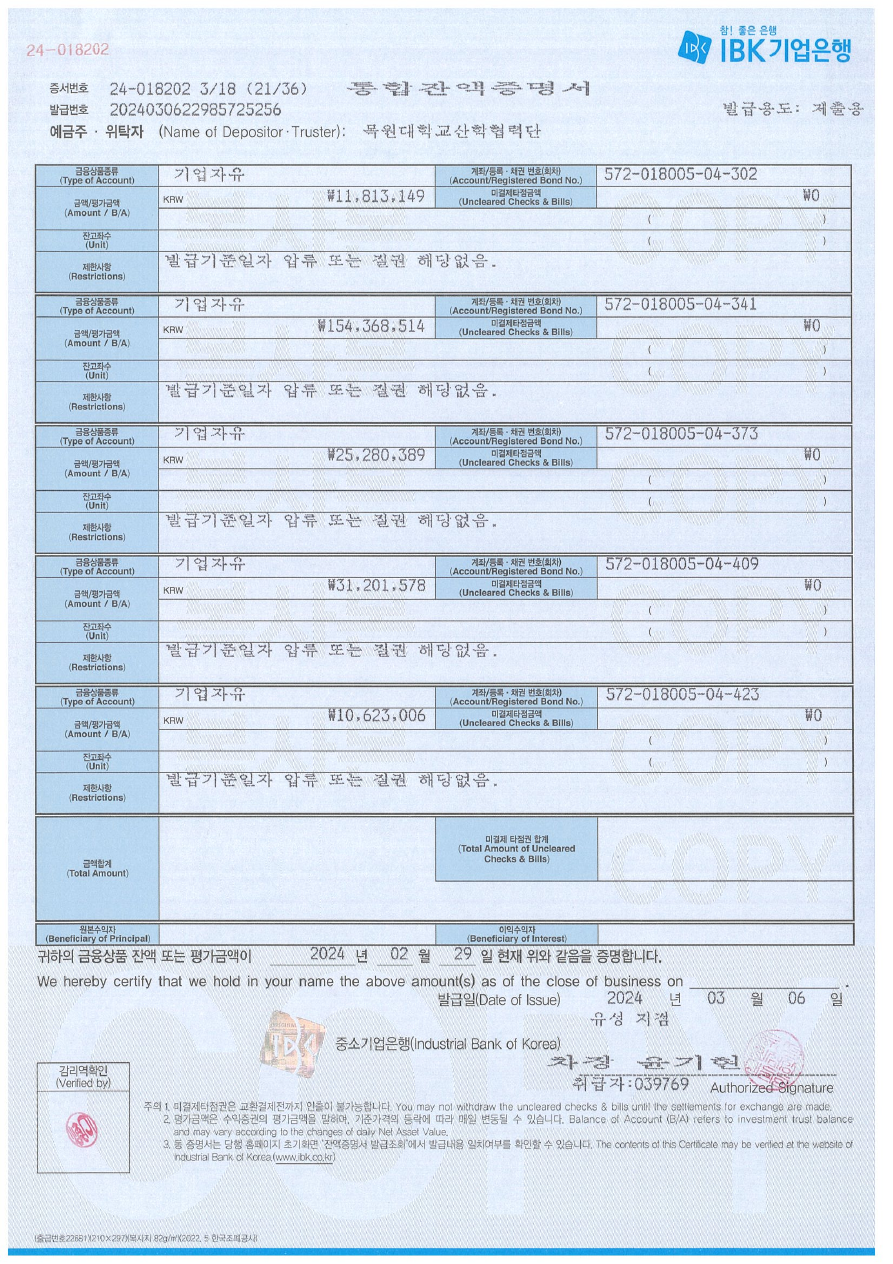 24-018202
참! 좋은 은행
IBK기업은행
증서번호 24-018202 3/18 (21/36) 통합잔액증명서
발급번호 2024030622985725256 발급용도: 제출용
예금주 · 위탁자 (Name of Depositor · Truster): 목원대학교산학협력단
금융상품종류 (Type of Account) 기업자유 계좌/등록 · 채권 번호(회차) (Account/Registered Bond No.) 572-018005-04-302
금액/평가금액 (Amount / B/A) KRW ₩11,813,149 미결제타점금액 (Uncleared Checks & Bills) ₩0
( )
잔고좌수 (Unit) ( )
제한사항 (Restrictions) 발급기준일자 압류 또는 질권 해당없음.
금융상품종류 (Type of Account) 기업자유 계좌/등록 · 채권 번호(회차) (Account/Registered Bond No.) 572-018005-04-341
금액/평가금액 (Amount / B/A) KRW ₩154,368,514 미결제타점금액 (Uncleared Checks & Bills) ₩0
( )
잔고좌수 (Unit) ( )
제한사항 (Restrictions) 발급기준일자 압류 또는 질권 해당없음.
금융상품종류 (Type of Account) 기업자유 계좌/등록 · 채권 번호(회차) (Account/Registered Bond No.) 572-018005-04-373
금액/평가금액 (Amount / B/A) KRW ₩25,280,389 미결제타점금액 (Uncleared Checks & Bills) ₩0
( )
잔고좌수 (Unit) ( )
제한사항 (Restrictions) 발급기준일자 압류 또는 질권 해당없음.
금융상품종류 (Type of Account) 기업자유 계좌/등록 · 채권 번호(회차) (Account/Registered Bond No.) 572-018005-04-409
금액/평가금액 (Amount / B/A) KRW ₩31,201,578 미결제타점금액 (Uncleared Checks & Bills) ₩0
( )
잔고좌수 (Unit) ( )
제한사항 (Restrictions) 발급기준일자 압류 또는 질권 해당없음.
금융상품종류 (Type of Account) 기업자유 계좌/등록 · 채권 번호(회차) (Account/Registered Bond No.) 572-018005-04-423
금액/평가금액 (Amount / B/A) KRW ₩10,623,006 미결제타점금액 (Uncleared Checks & Bills) ₩0
( )
잔고좌수 (Unit) ( )
제한사항 (Restrictions) 발급기준일자 압류 또는 질권 해당없음.
금액합계 (Total Amount) 미결제 타점권 합계 (Total Amount of Uncleared Checks & Bills)
원본수익자 (Beneficiary of Principal) 이익수익자 (Beneficiary of Interest)
귀하의 금융상품 잔액 또는 평가금액이 2024 년 02 월 29 일 현재 위와 같음을 증명합니다.
We hereby certify that we hold in your name the above amount(s) as of the close of business on .
발급일(Date of Issue) 2024 년 03 월 06 일
유성 지점
중소기업은행(Industrial Bank of Korea)
차장 윤기현
취급자:039769 Authorized Signature
감리역확인 (Verified by)
주의 1. 미결제타점권은 교환결제전까지 인출이 불가능합니다. You may not withdraw the uncleared checks & bills until the settlements for exchange are made.
2. 평가금액은 수익증권의 평가금액을 말하며, 기준가격의 등락에 따라 매일 변동될 수 있습니다. Balance of Account (B/A) refers to investment trust balance
and may vary according to the changes of daily Net Asset Value.
3. 동 증명서는 당행 홈페이지 초기화면 "잔액증명서 발급조회"에서 발급내용 일치여부를 확인할 수 있습니다. The contents of this Certificate may be verified at the website of
Industrial Bank of Korea.(www.ibk.co.kr)
(출급번호22881)(210×297)(복사지 82g/㎡)(2022. 5 한국조폐공사)
COPY